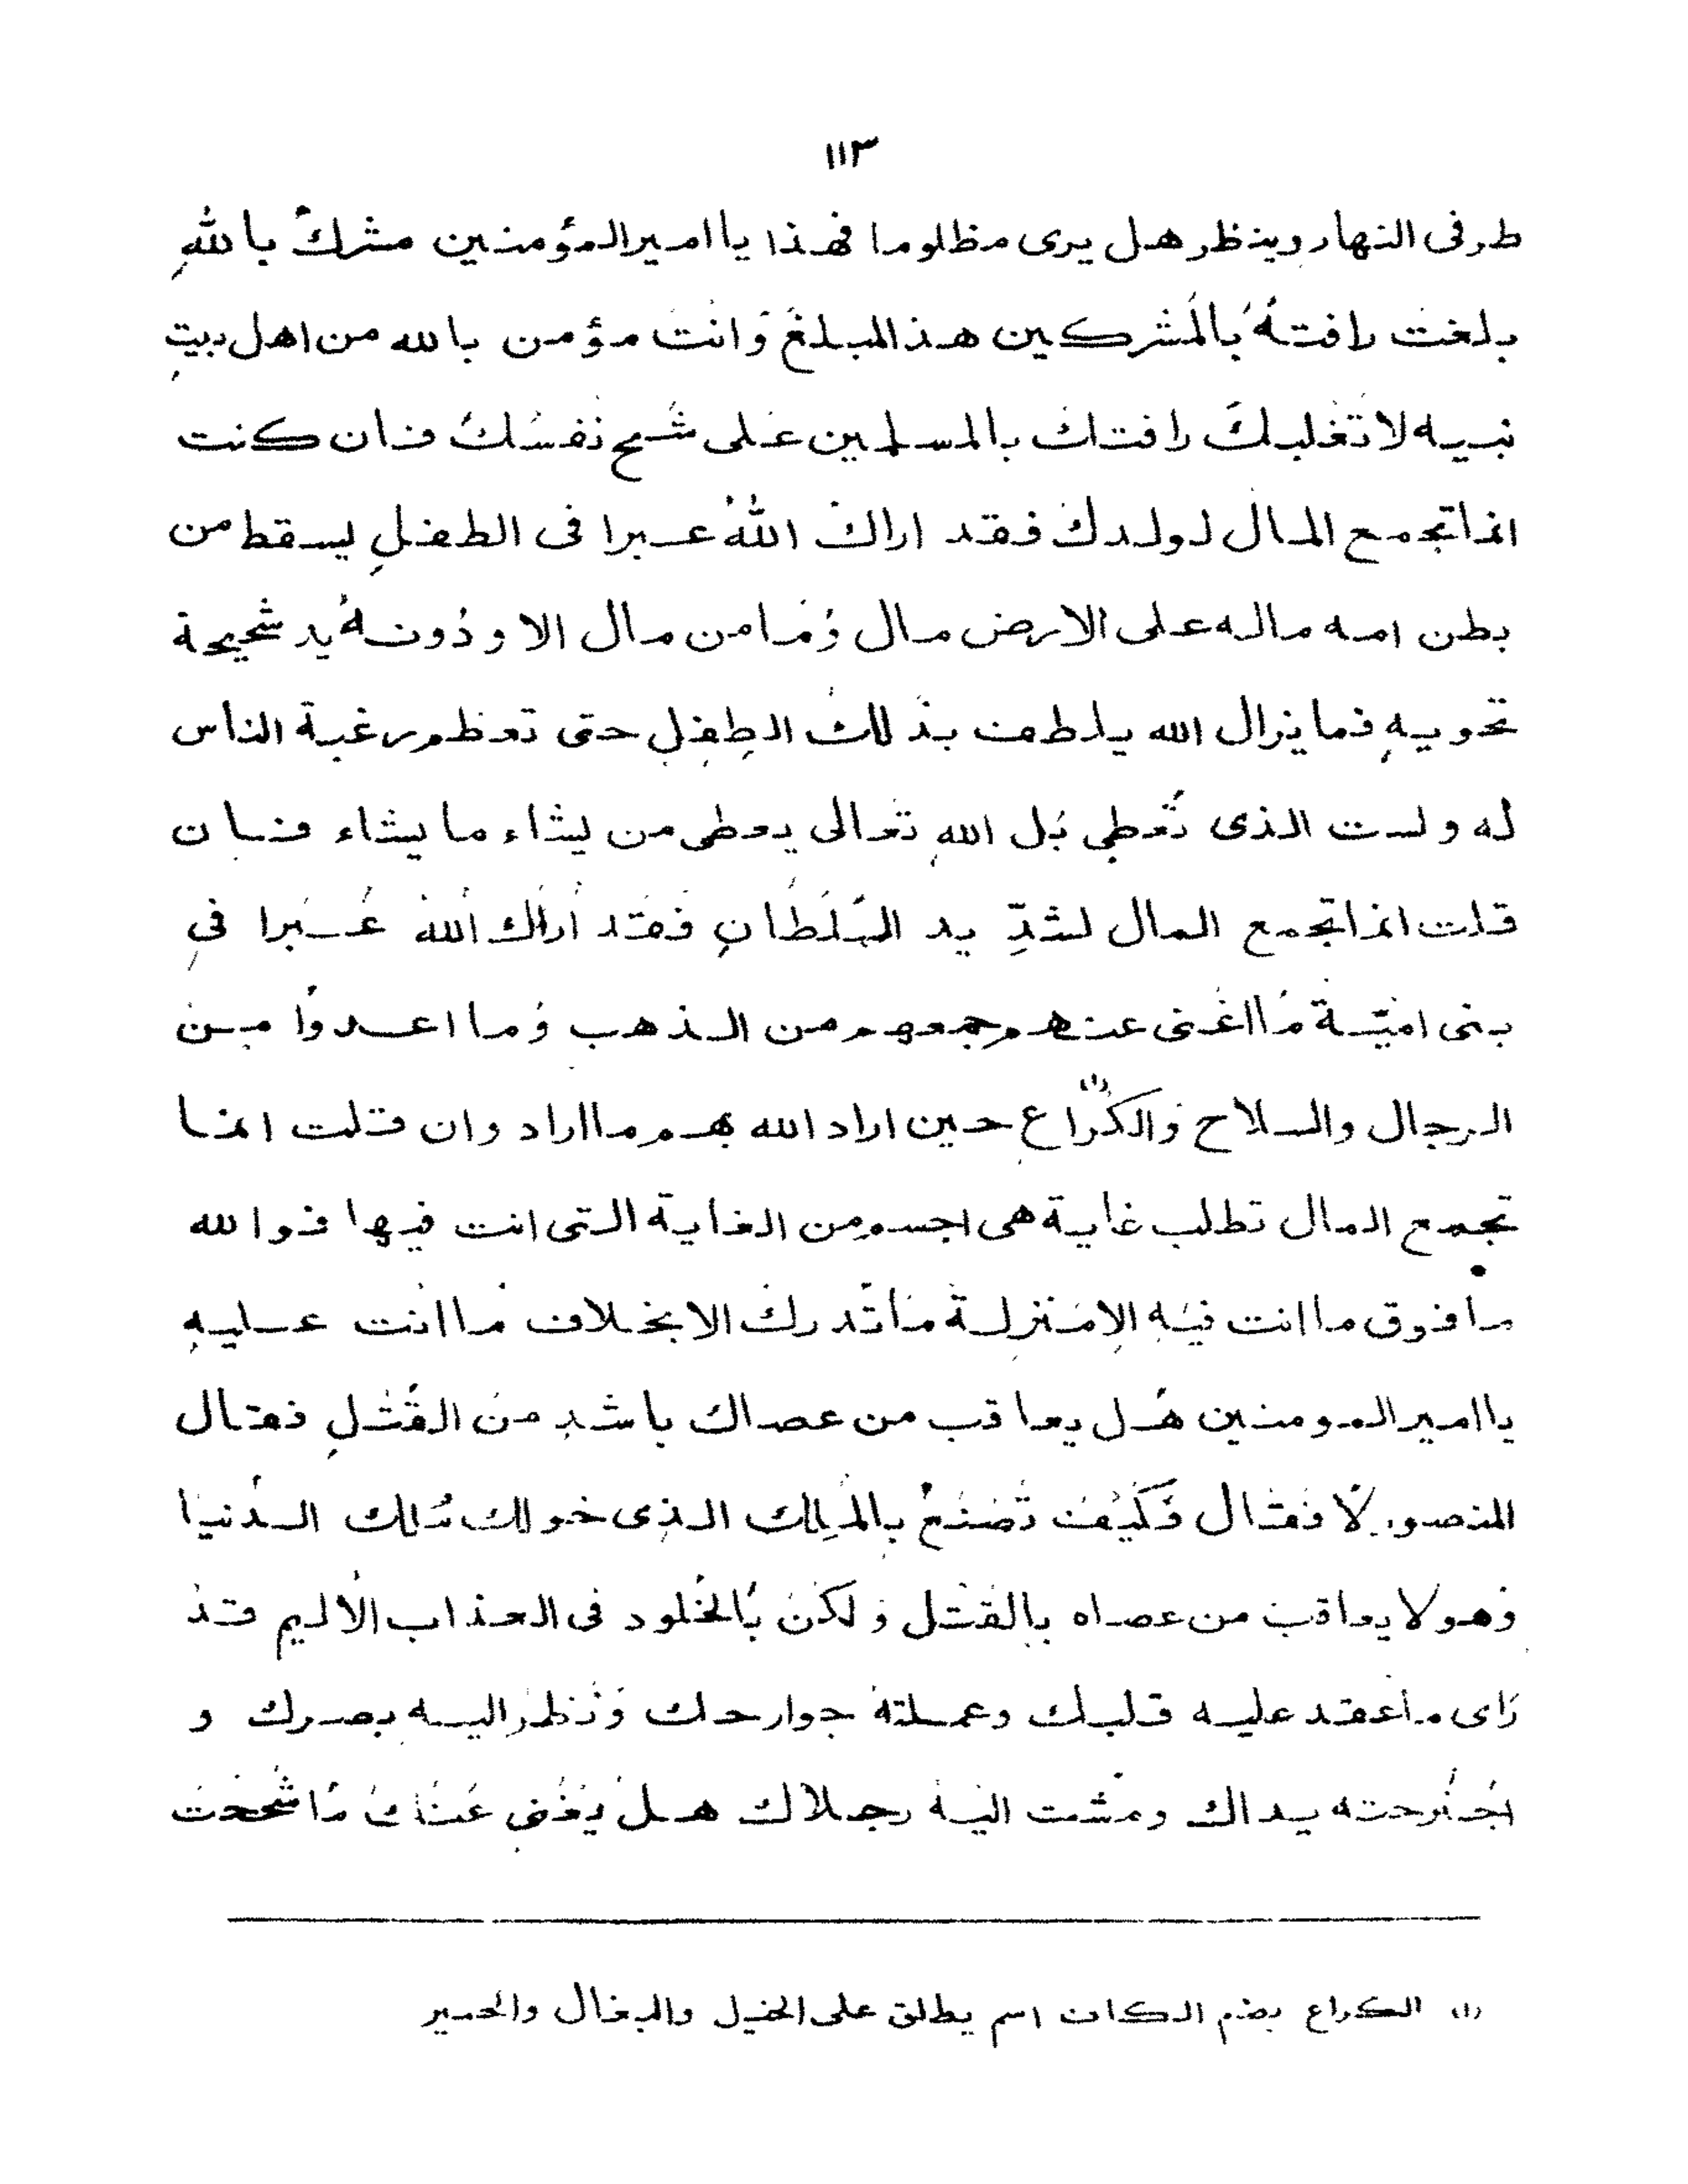 ١١٣
طرفى النهار وينظر هل يرى مظلوما فهذا يا امير المؤمنين مشرك بالله
بلغت رافته بالمشركين هذ المبلغ وانت مؤمن بالله من اهل بيت
نبيه لا تغلبك رافتك بالمسلمين على شح نفسك فان كنت
انما تجمع المال لولدك فقد اراك الله عبرا فى الطفل يسقط من
بطن امه ماله على الارض مال وما من مال الا و دونه يد شحيحة
تحويه فما يزال الله يلطف بذلك الطفل حتى تعظم رغبة الناس
له ولست الذى تعطي بل الله تعالى يعطى من يشاء ما يشاء فان
قلت انما تجمع المال لشدّ يد السلطان فقد اراك الله عبرا فى
بنى اميّة ما اغنى عنهم جمعهم من الذهب وما اعدوا من
الرجال والسلاح والكراع (١) حين اراد الله بهم ما اراد وان قلت انما
تجمع المال تطلب غاية هى اجسم من الغاية التى انت فيها فوالله
ما فوق ما انت فيه الا منزلة ما تدرك الا بخلاف ما انت عليه
يا امير المومنين هل يعاقب من عصاك باشد من القتل فقال
المنصور لا فقال فكيف تصنع بالملك الذى خولك ملك الدنيا
وهو لا يعاقب من عصاه بالقتل ولكن بالخلود فى العذاب الاليم قد
راى ما عقد عليه قلبك وعملته جوارحك ونظر اليه بصرك و
اجترحته يداك ومشت اليه رجلاك هل يغنى عنك ما شححت
(١) الكراع بضم الكاف اسم يطلق على الخيل والبغال والحمير